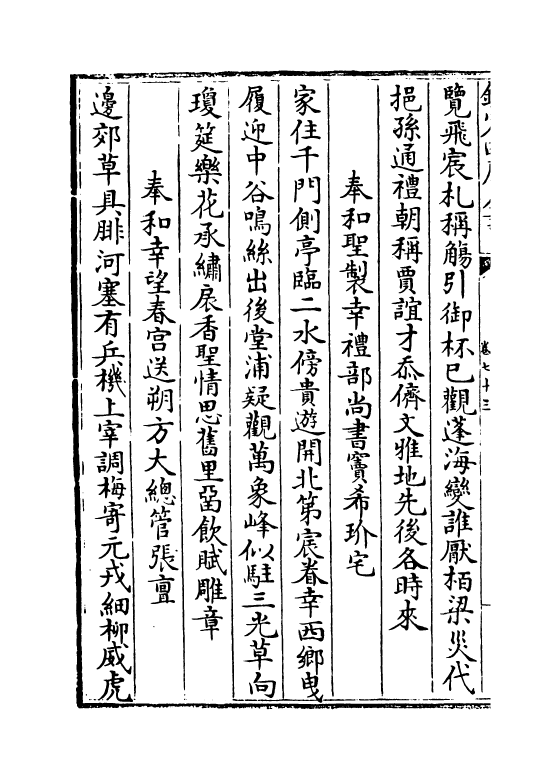 卷七十三
覽飛宸札稱觴引御杯已觀蓬海變誰厭栢梁災代
挹孫通禮朝稱賈誼才忝儕文雅地先後各時來
奉和聖製幸禮部尚書竇希玠宅
家住千門側亭臨二水傍貴遊開北第宸眷幸西鄉曳
履迎中谷鳴絲出後堂浦疑觀萬象峰似駐三光草向
瓊筵樂花承繡扆香聖情思舊里畱飲賦雕章
奉和幸望春宫送朔方大總管張亶
邊郊草具腓河塞有兵機上宰調梅寄元戎細柳威虎